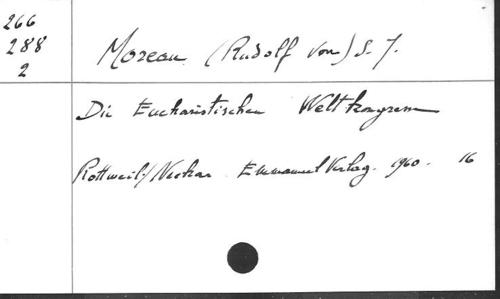 266
288
2
Moreau (Rudolf von) S. J.
Die Eucharistischen Weltkongresse
Rottweil/Neckar. Emmanuel Verlag. 1960. 16